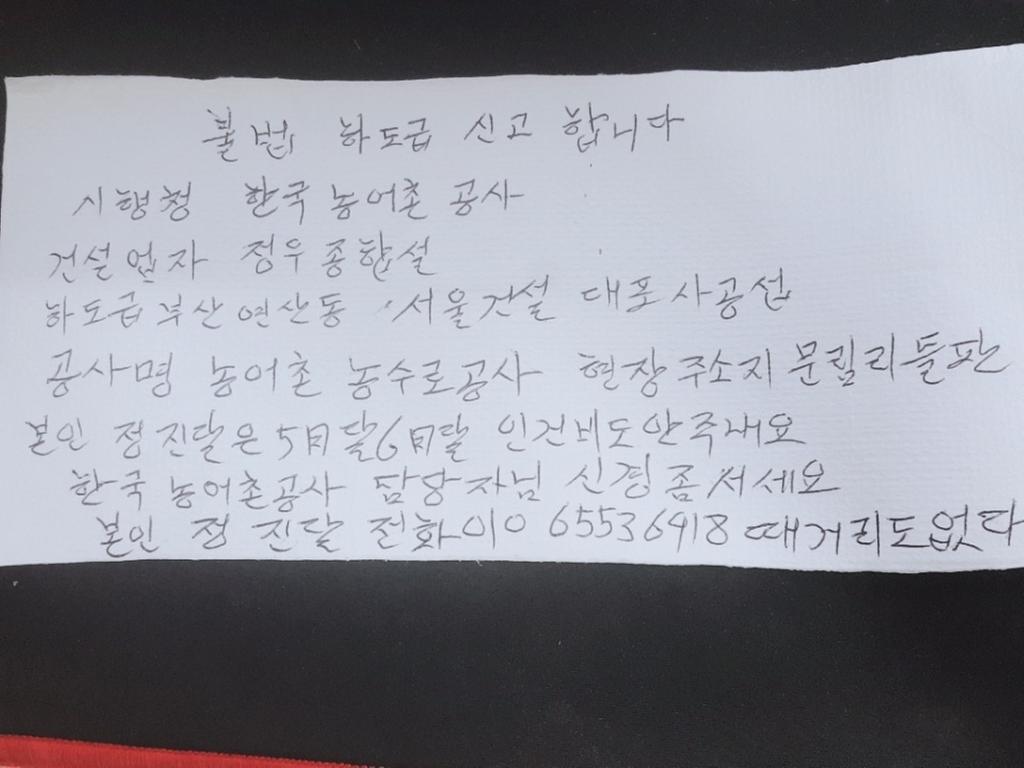 불법 하도급 신고 합니다
시행청 한국 농어촌 공사
건설업자 정우종합설
하도급부산연산동 서울건설 대포사공섭
공사명 농어촌 농수로공사 현장주소지 문림리들판
본인 정진달은 5月달6月달 인건비도안주내요
한국 농어촌공사 담당자님 신경좀써세요
본인 정 진달 전화 010 65536918 때거리도없다